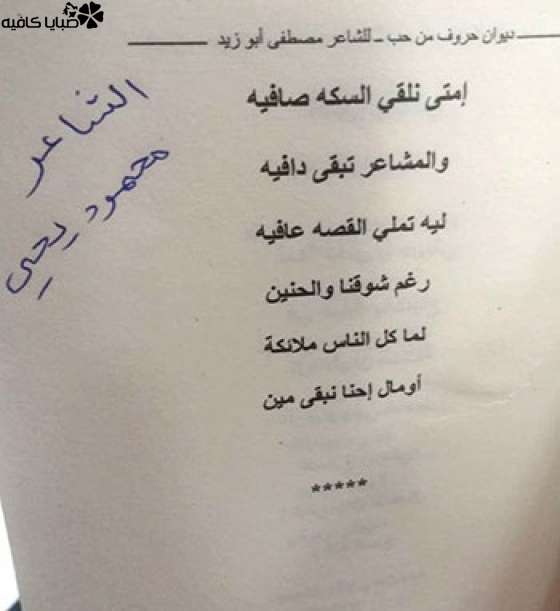 صبايا كافيه
ديوان حروف من حب ـ للشاعر مصطفى أبو زيد
إمتى نلقي السكه صافيه
والمشاعر تبقى دافيه
ليه تملي القصه عافيه
رغم شوقنا والحنين
لما كل الناس ملائكة
أومال إحنا نبقى مين
*****
الشاعر
محمود يحيى